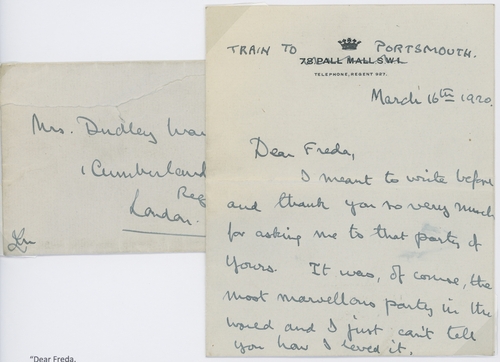 Mrs. Dudley
1 Cumberland
London.
TRAIN TO PORTSMOUTH.
78 PALL MALL S.W.1.
TELEPHONE, REGENT 927.
March 16th 1920.
Dear Freda,
I meant to write before
and thank you so very much
for asking me to that party of
yours. It was, of course, the
most marvellous party in the
world and I just can't tell
you how I loved it.
"Dear Freda,